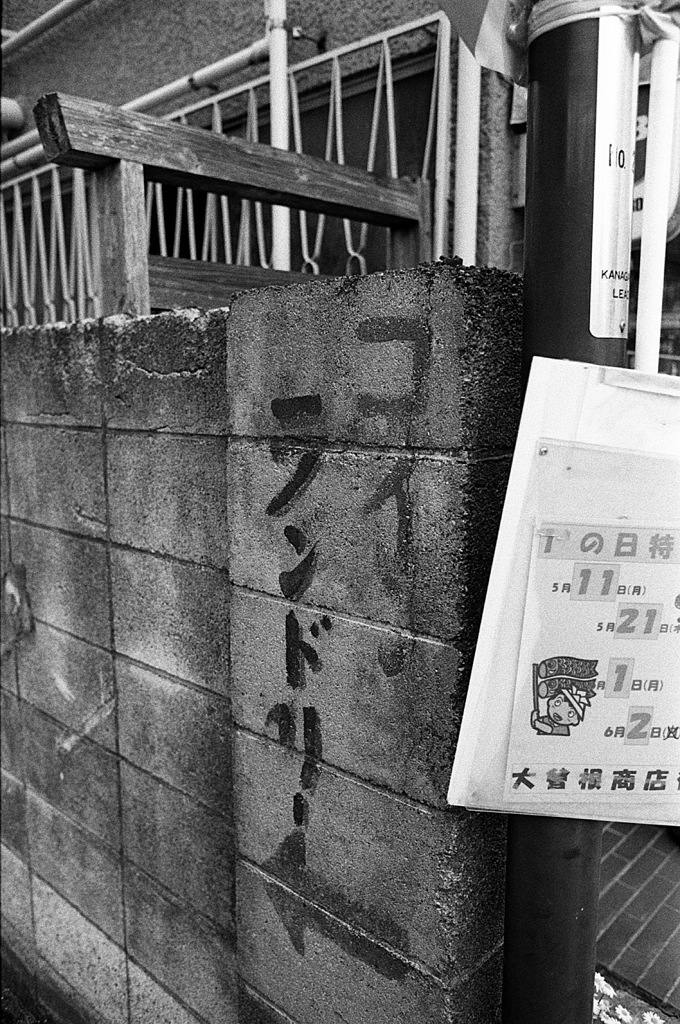 コイン
ランドリー
No.
KANAG
LEA
1の日特
5月11日(月)
5月21日(木
月1日(月)
6月2日(火
大曽根商店街